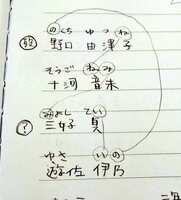 のぐち ゆつね
野口 由津子
そうご ねみ
十河 音未
みよし てい
? 三好 貞
ゆさ いの
遊佐 伊乃